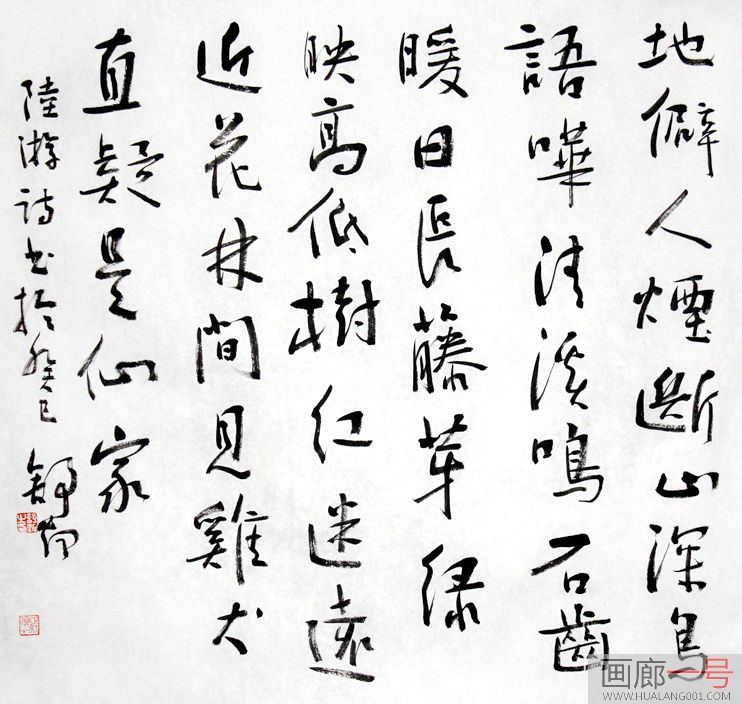 地僻人煙斷山深鳥
語嘩清溪鳴石齒
暖日長藤芽緑
映高低樹紅迷遠
近花林間見雞犬
直疑是仙家
陸游詩书於癸巳
画廊一号
WWW.HUALANG001.COM